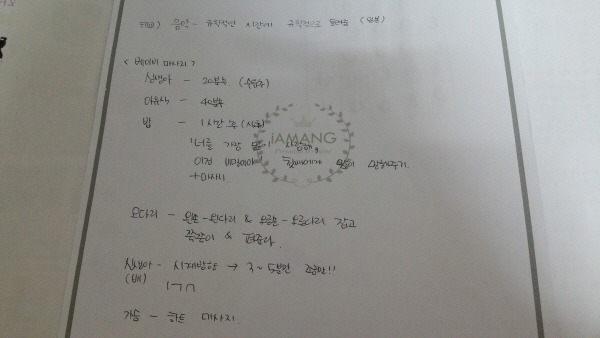 태교) 음악 - 규칙적인 시간에 규칙적으로 들려줌 (일부)
< 베이비 마사지 >
신생아 - 20분후 (수유후)
이유식 - 40분후
밥 - 1시간 후 (식후)
iAMANG
"너를 가장 많이 사랑해,
이건 비밀이야" 말해주기.
+ 마사지
오다리 - 왼손-왼다리 & 오른손-오른다리 잡고
쭉쭉이 & 펴준다.
신생아 - 시계방향 → 3~5분만 조금만!!
(배) ㄱㄱ
가슴 - 하트 마사지.